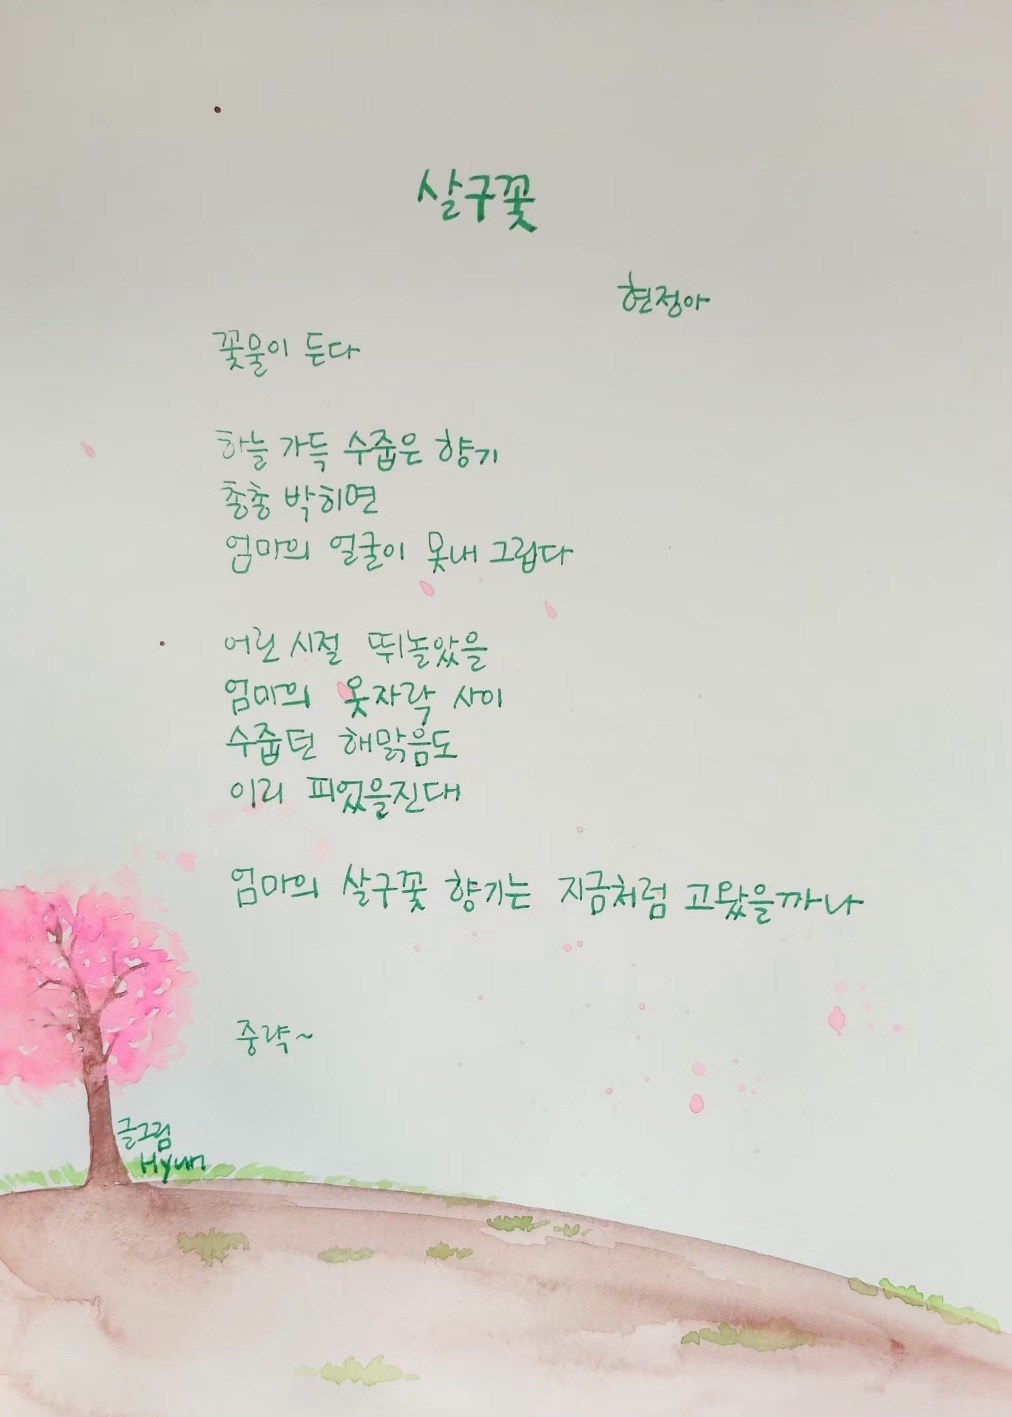 살구꽃
현정아
꽃물이 든다
하늘 가득 수줍은 향기
총총 박히면
엄마의 얼굴이 못내 그립다
어린 시절 뛰놀았을
엄마의 옷자락 사이
수줍던 해맑음도
이리 피었을진대
엄마의 살구꽃 향기는 지금처럼 고왔을까나
중략~
글그림
Hyun